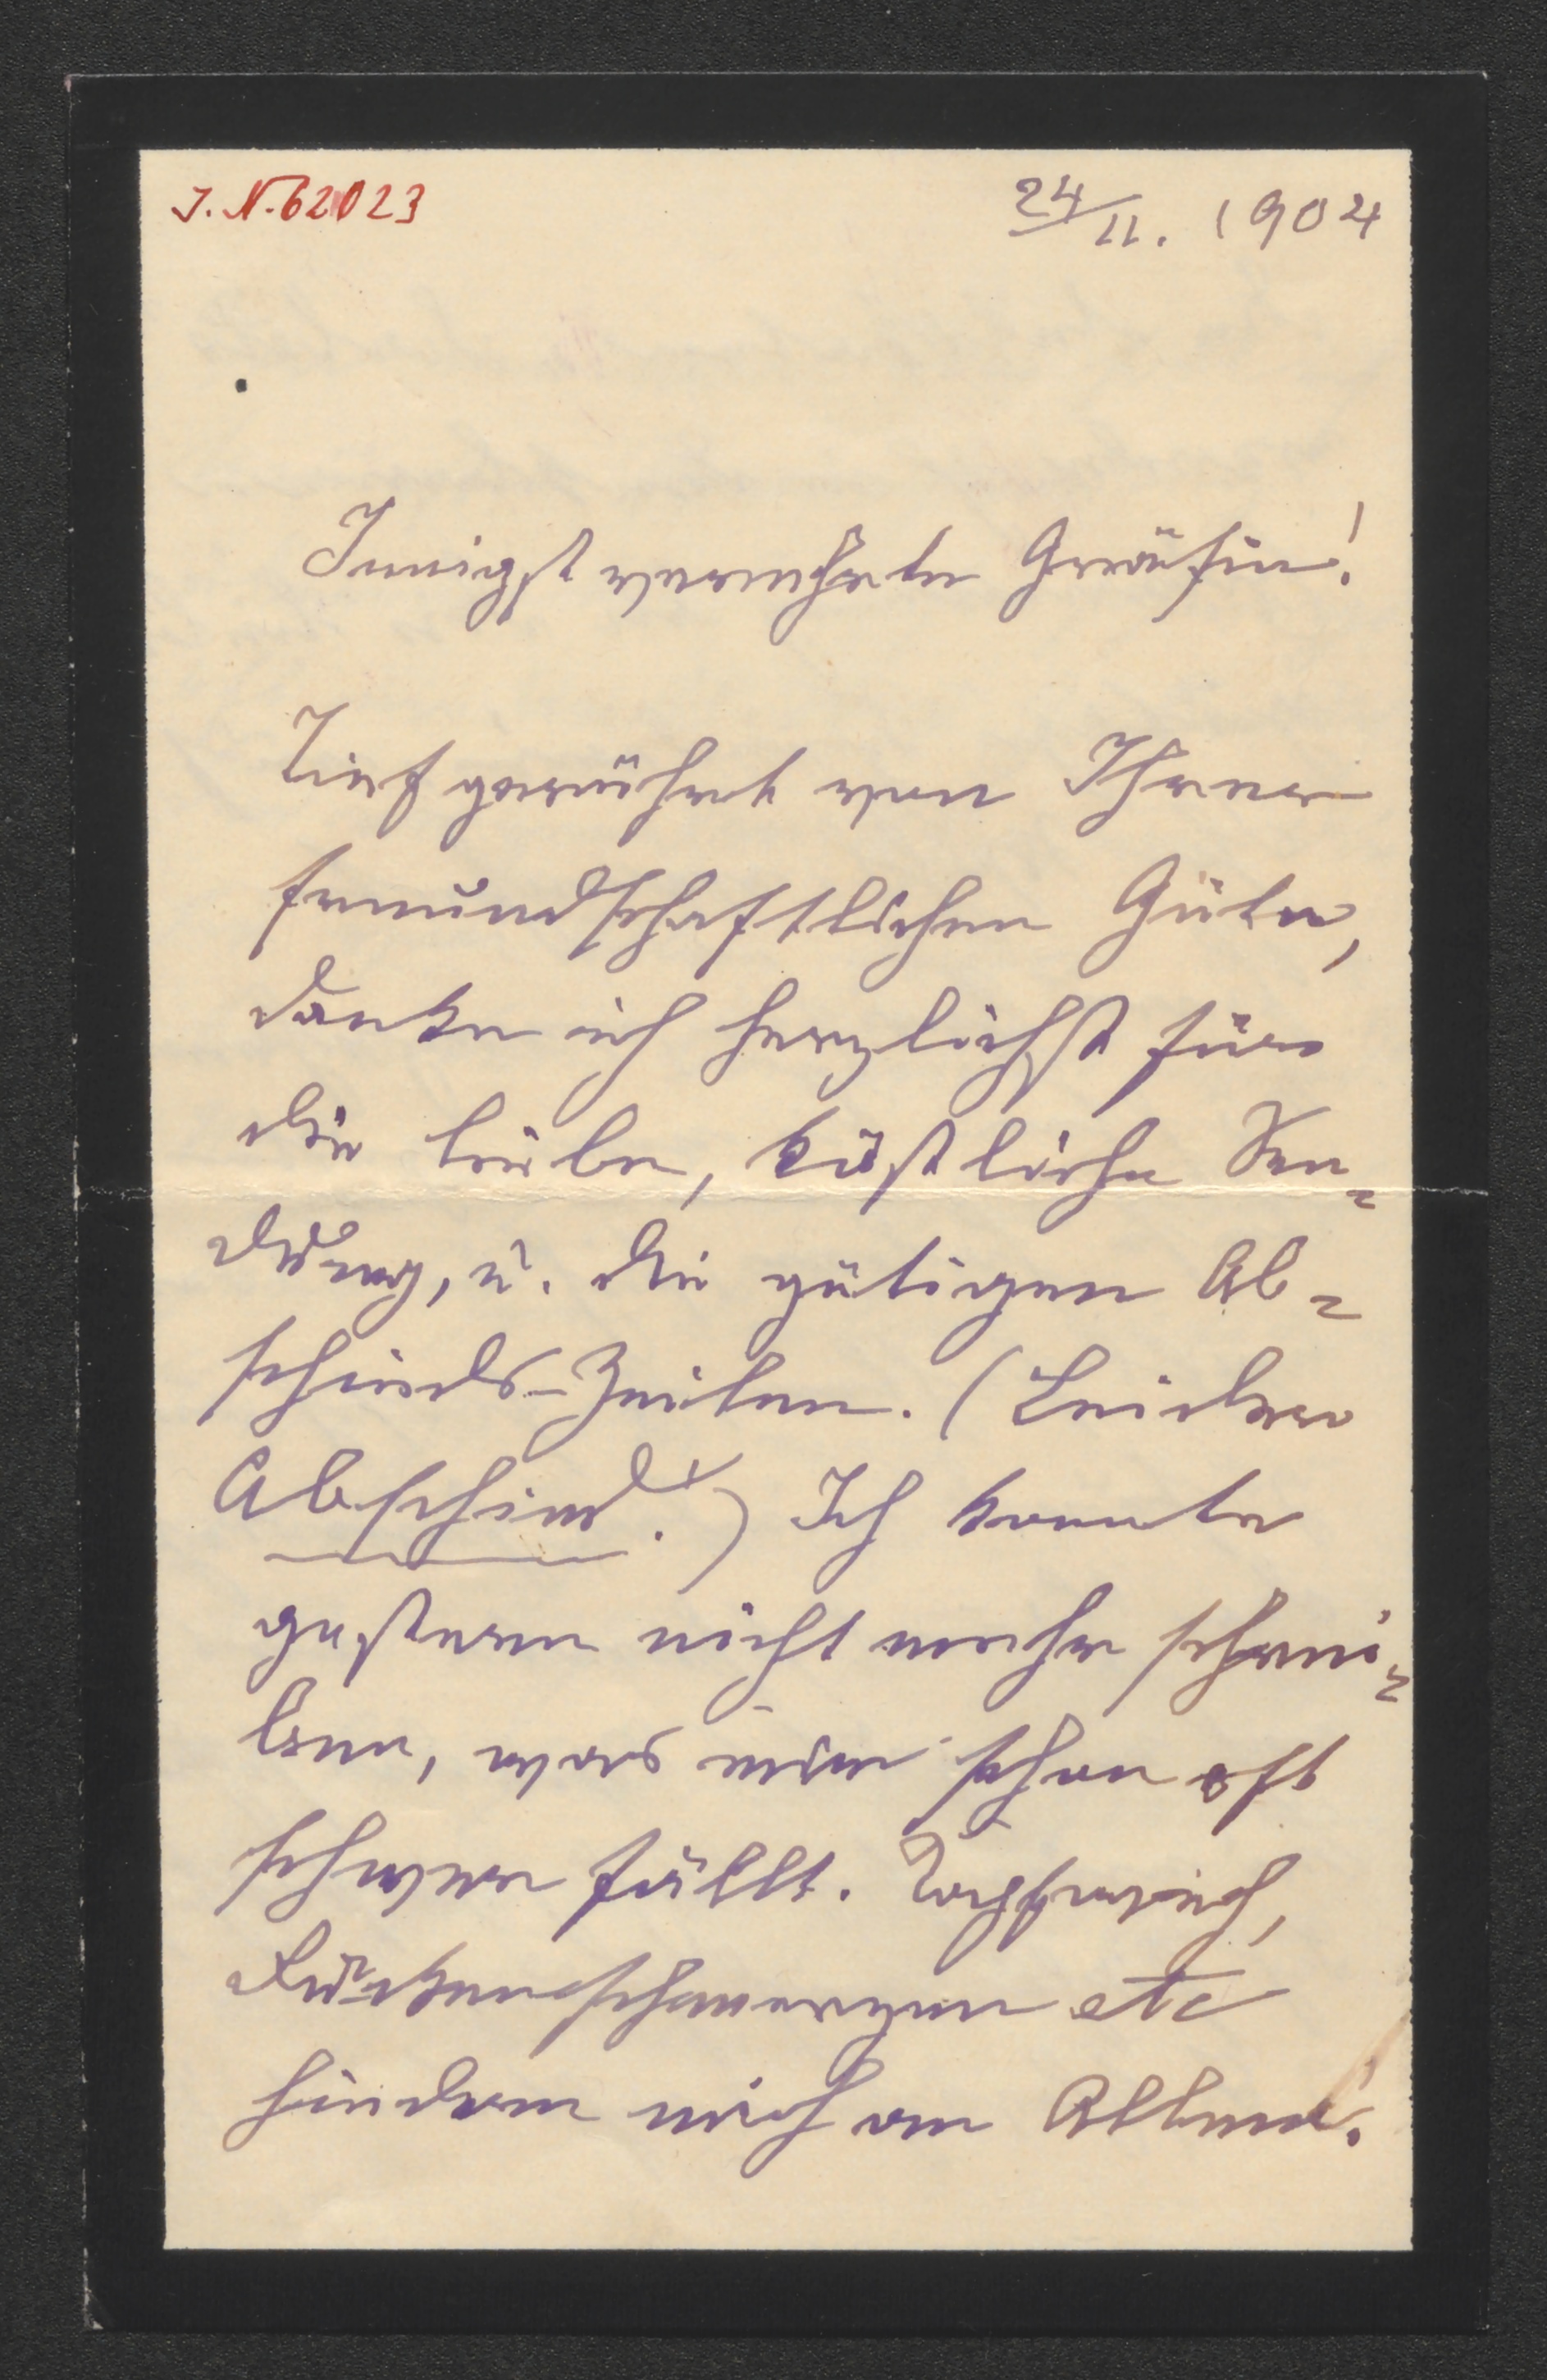 J. N. 62023
24/11. 1904
Innigst verehrte Gräfin!
Tief gerührt von Ihrer
freundschaftlichen Güte,
danke ich herzlichst für
die liebe, köstliche Sen=
dung, u. die gütigen Ab=
schieds-Zeilen. (Leider
Abschied!) Ich konnte
gestern nicht mehr schrei=
ben, was mir schon oft
schwer fällt. Kopfweh,
Rückenschmerzen etc
hindern mich an Allem.